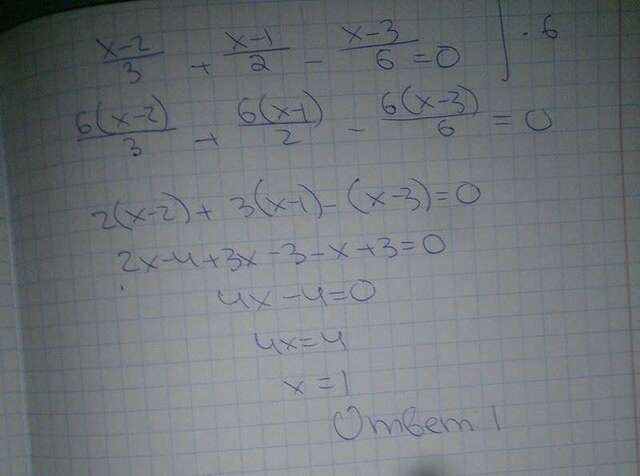 (x-2)/3 + (x-1)/2 - (x-3)/6 = 0 | · 6
6(x-2)/3 + 6(x-1)/2 - 6(x-3)/6 = 0
2(x-2) + 3(x-1) - (x-3) = 0
2x-4+3x-3-x+3=0
4x-4=0
4x=4
x=1
Ответ 1